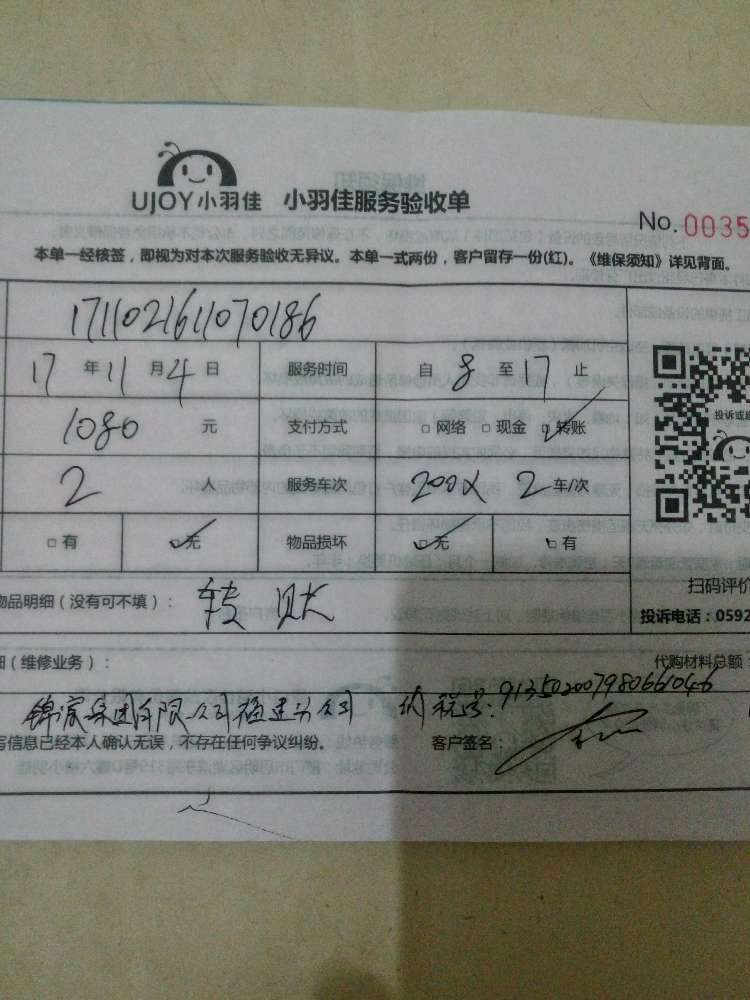 UJOY小羽佳 小羽佳服务验收单
No. 0035
本单一经核签，即视为对本次服务验收无异议。本单一式两份，客户留存一份(红)。《维保须知》详见背面。
1711021611070186
17 年 11 月 4 日 服务时间 自 8 至 17 止
1080 元 支付方式 □ 网络 □ 现金 ☑ 转账
投诉或
2 人 服务车次 200X 2 车/次
□ 有 ☑ 无 物品损坏 ☑ 无 □ 有
扫码评价
物品明细（没有可不填）： 转账
投诉电话：0592
（维修业务）： 代购材料总额：
集团有限公司福建分公司 纳税号：913502007980661046
写信息已经本人确认无误，不存在任何争议纠纷。 客户签名：